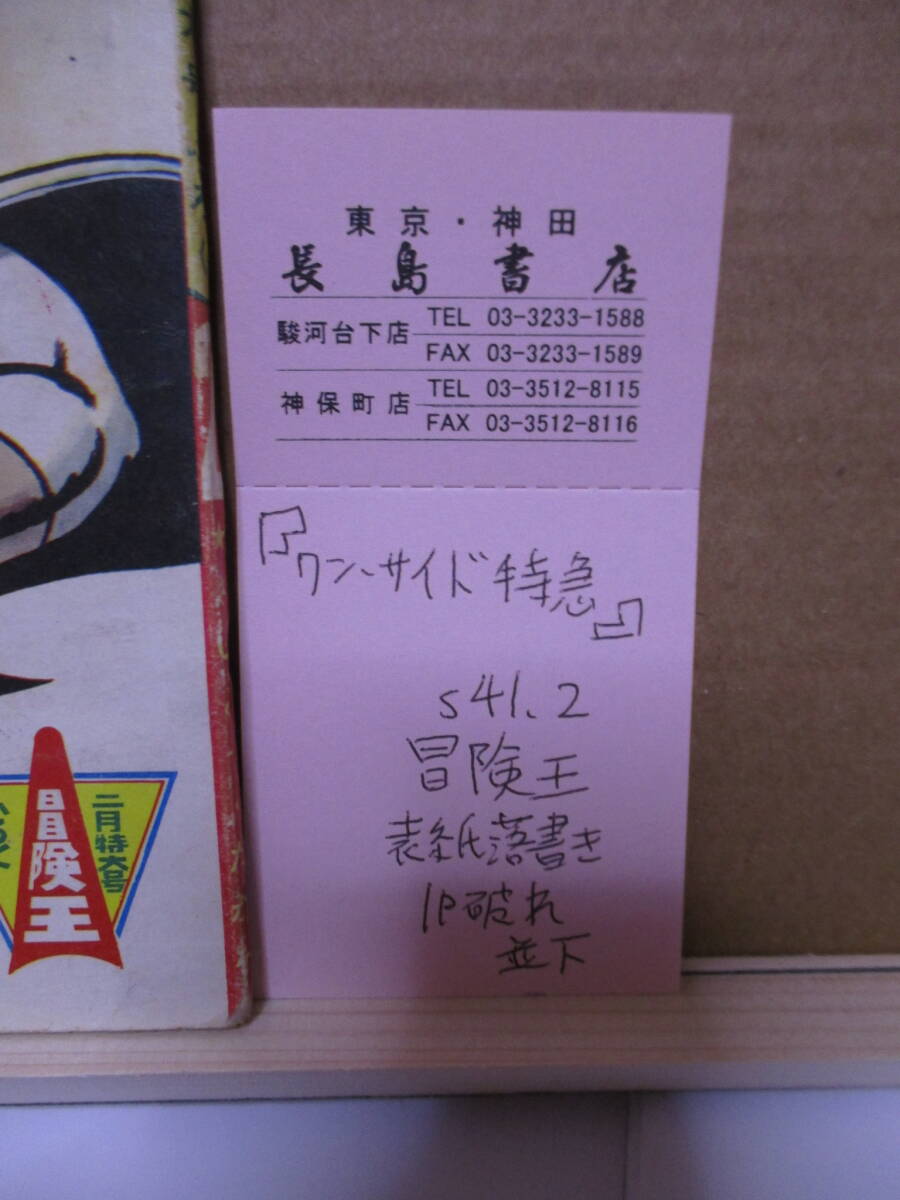 東京・神田
長島書店
駿河台下店
TEL 03-3233-1588
FAX 03-3233-1589
神保町店
TEL 03-3512-8115
FAX 03-3512-8116
『ワンサイド特急』
s41.2
冒険王
表紙落書き
1P破れ
並下
二月特大号
冒険王